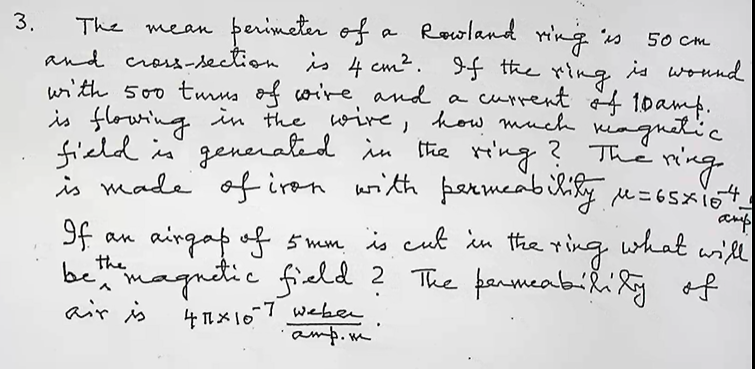 3. The mean perimeter of a Rowland ring is 50 cm
and cross-section is 4 cm². If the ring is wound
with 500 turns of wire and a current of 10 amp.
is flowing in the wire, how much magnetic
field is generated in the ring? The ring
is made of iron with permeability μ = 65×10⁻⁴
amp
If an airgap of 5 mm is cut in the ring what will
be the magnetic field? The permeability of
air is 4π×10⁻⁷ weber/amp.m.